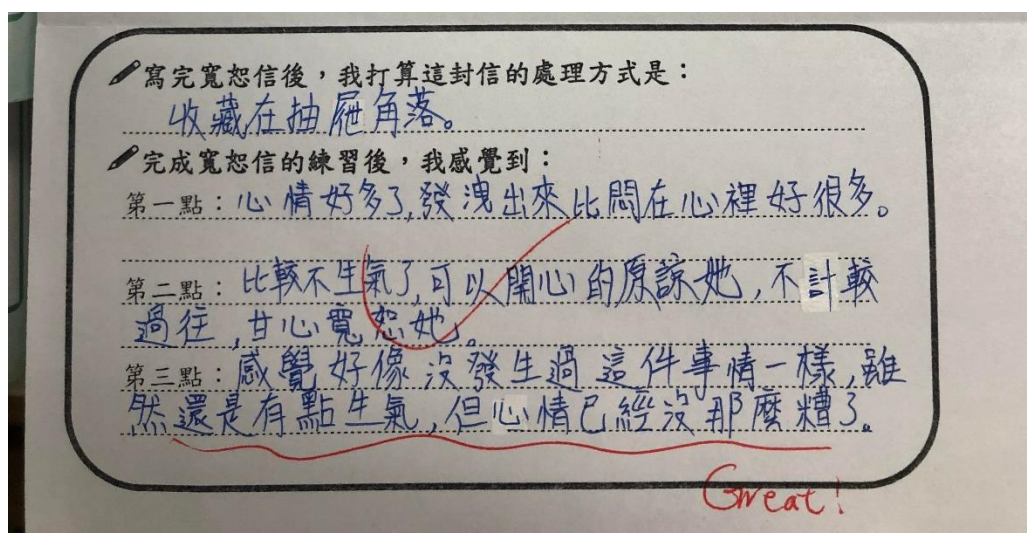 寫完寬恕信後，我打算這封信的處理方式是：
收藏在抽屜角落。
完成寬恕信的練習後，我感覺到：
第一點：心情好多了,發洩出來比悶在心裡好很多。
第二點：比較不生氣了,可以開心的原諒她,不計較
過往,甘心寬恕她。
第三點：感覺好像沒發生過這件事情一樣,雖
然還是有點生氣,但心情已經沒那麼糟了。
Great!